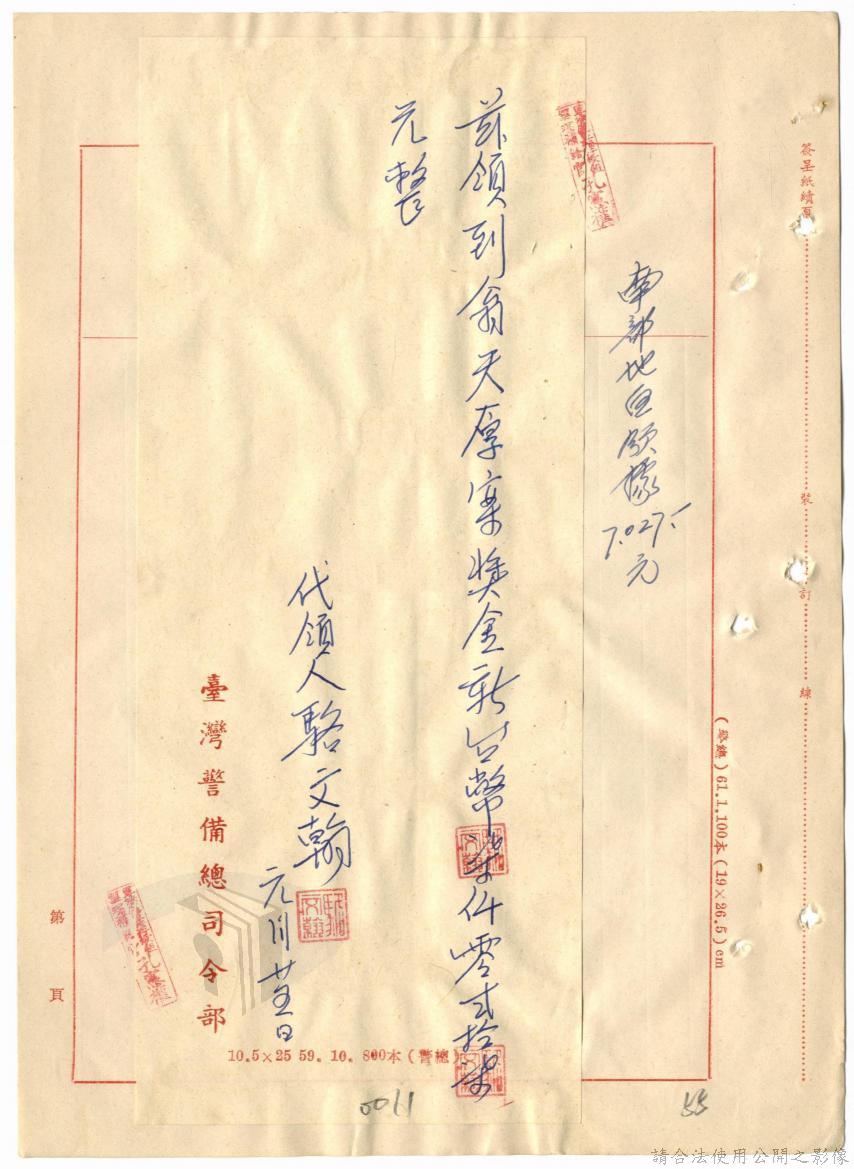 簽呈紙續頁
裝
訂
線
南部地區領據
7.027.-元
茲領到翁天厚案獎金新台幣柒仟零貳拾柒
元整
代領人駱文翰
元月廿五日
臺灣警備總司令部
10.5×25 59.10.800本(警總)
(警總)61.1.100本(19×26.5)cm
第 頁
0011
55
請合法使用公開之影像